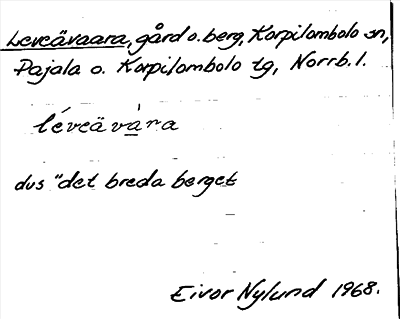 Leveävaara, gård o. berg, Korpilombolo sn,
Pajala o. Korpilombolo tg, Norrb. l.
léveävàra
dvs "det breda berget
Eivor Nylund 1968.